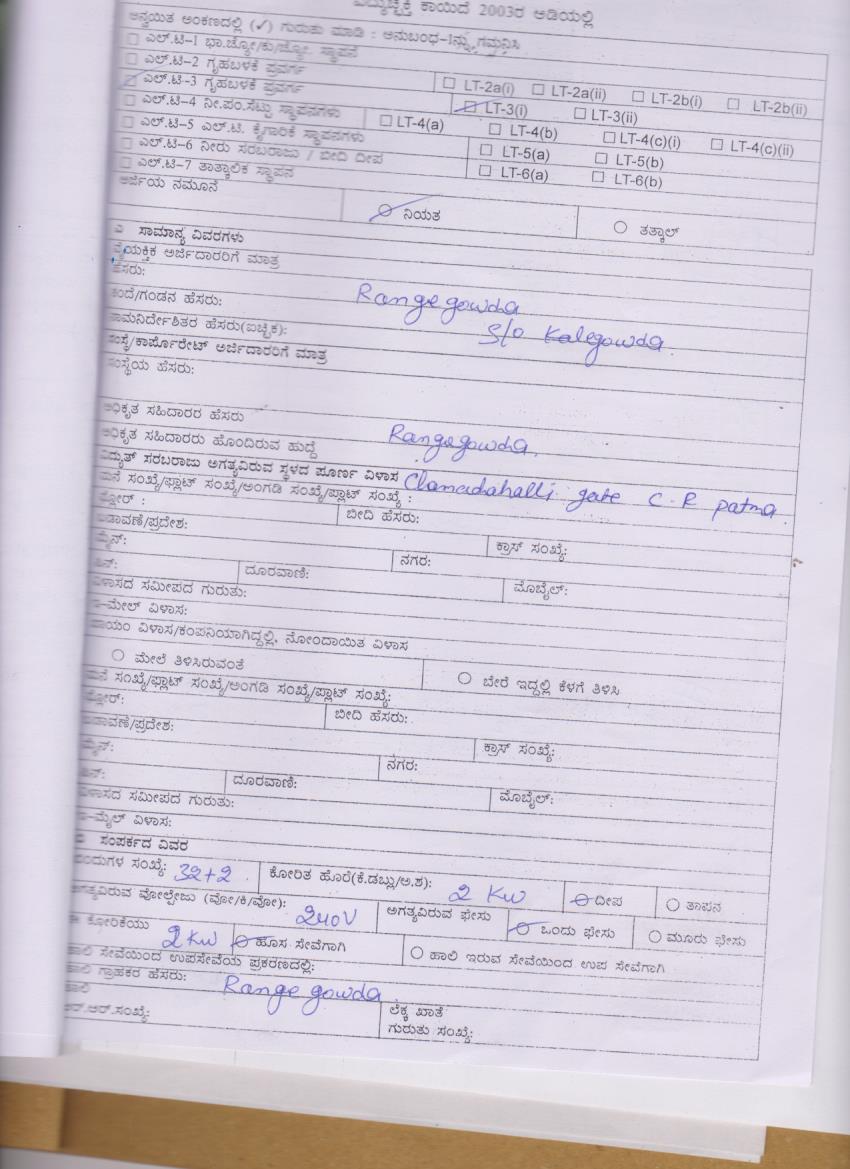 ಕಾಯಿದೆ 2003ರ ಅಡಿಯಲ್ಲಿ
ಅನ್ವಯಿತ ಅಂಕಣದಲ್ಲಿ (✓) ಗುರುತು ಮಾಡಿ : ಅನುಬಂಧ-1ನ್ನು ಗಮನಿಸಿ
☐ ಎಲ್.ಟಿ-1 ಭಾ.ಜ್ಯೋ/ಕು.ಜ್ಯೋ. ಸ್ಥಾಪನೆ
☐ ಎಲ್.ಟಿ-2 ಗೃಹಬಳಕೆ ಪ್ರವರ್ಗ ☐ LT-2a(i) ☐ LT-2a(ii) ☐ LT-2b(i) ☐ LT-2b(ii)
☐ ಎಲ್.ಟಿ-3 ಗೃಹಬಳಕೆ ಪ್ರವರ್ಗ ☐ LT-3(i) ☐ LT-3(ii)
☐ ಎಲ್.ಟಿ-4 ನೀ.ಪಂ.ಸೆಟ್ಟು ಸ್ಥಾಪನಗಳು ☐ LT-4(a) ☐ LT-4(b) ☐ LT-4(c)(i) ☐ LT-4(c)(ii)
☐ ಎಲ್.ಟಿ-5 ಎಲ್.ಟಿ. ಕೈಗಾರಿಕೆ ಸ್ಥಾಪನಗಳು ☐ LT-5(a) ☐ LT-5(b)
☐ ಎಲ್.ಟಿ-6 ನೀರು ಸರಬರಾಜು / ಬೀದಿ ದೀಪ ☐ LT-6(a) ☐ LT-6(b)
☐ ಎಲ್.ಟಿ-7 ತಾತ್ಕಾಲಿಕ ಸ್ಥಾಪನ
ಅರ್ಜಿಯ ನಮೂನೆ ○ ನಿಯತ ○ ತತ್ಕಾಲ್
ಸಾಮಾನ್ಯ ವಿವರಗಳು
ವೈಯಕ್ತಿಕ ಅರ್ಜಿದಾರರಿಗೆ ಮಾತ್ರ
ಹೆಸರು: Rangegowda
ತಂದೆ/ಗಂಡನ ಹೆಸರು: S/o Kalegowda.
ನಾಮನಿರ್ದೇಶಿತರ ಹೆಸರು(ಐಚ್ಛಿಕ):
ಸಂಸ್ಥೆ/ಕಾರ್ಪೊರೇಟ್ ಅರ್ಜಿದಾರರಿಗೆ ಮಾತ್ರ
ಸಂಸ್ಥೆಯ ಹೆಸರು:
ಅಧಿಕೃತ ಸಹಿದಾರರ ಹೆಸರು Rangegowda.
ಅಧಿಕೃತ ಸಹಿದಾರರು ಹೊಂದಿರುವ ಹುದ್ದೆ
ವಿದ್ಯುತ್ ಸರಬರಾಜು ಅಗತ್ಯವಿರುವ ಸ್ಥಳದ ಪೂರ್ಣ ವಿಳಾಸ gate C R patna.
ಮನೆ ಸಂಖ್ಯೆ/ಫ್ಲಾಟ್ ಸಂಖ್ಯೆ/ಅಂಗಡಿ ಸಂಖ್ಯೆ/ಪ್ಲಾಟ್ ಸಂಖ್ಯೆ :
ಫ್ಲೋರ್ : ಬೀದಿ ಹೆಸರು:
ಬಡಾವಣೆ/ಪ್ರದೇಶ: ಕ್ರಾಸ್ ಸಂಖ್ಯೆ:
ಮೈನ್: ನಗರ:
ಪಿನ್: ದೂರವಾಣಿ: ಮೊಬೈಲ್:
ವಿಳಾಸದ ಸಮೀಪದ ಗುರುತು:
ಇ-ಮೇಲ್ ವಿಳಾಸ:
ಖಾಯಂ ವಿಳಾಸ/ಕಂಪನಿಯಾಗಿದ್ದಲ್ಲಿ, ನೋಂದಾಯಿತ ವಿಳಾಸ
○ ಮೇಲೆ ತಿಳಿಸಿರುವಂತೆ ○ ಬೇರೆ ಇದ್ದಲ್ಲಿ ಕೆಳಗೆ ತಿಳಿಸಿ
ಮನೆ ಸಂಖ್ಯೆ/ಫ್ಲಾಟ್ ಸಂಖ್ಯೆ/ಅಂಗಡಿ ಸಂಖ್ಯೆ/ಪ್ಲಾಟ್ ಸಂಖ್ಯೆ:
ಫ್ಲೋರ್: ಬೀದಿ ಹೆಸರು:
ಬಡಾವಣೆ/ಪ್ರದೇಶ: ಕ್ರಾಸ್ ಸಂಖ್ಯೆ:
ಮೈನ್: ನಗರ:
ಪಿನ್: ದೂರವಾಣಿ: ಮೊಬೈಲ್:
ವಿಳಾಸದ ಸಮೀಪದ ಗುರುತು:
ಇ-ಮೈಲ್ ವಿಳಾಸ:
ಸಂಪರ್ಕದ ವಿವರ
ಬಿಂದುಗಳ ಸಂಖ್ಯೆ: 32+2 ಕೋರಿತ ಹೊರೆ(ಕೆ.ಡಬ್ಲು/ಅ.ಶ): 2 KW ○ ದೀಪ ○ ತಾಪನ
ಅಗತ್ಯವಿರುವ ವೋಲ್ಟೇಜು (ವೋ/ಕಿ/ವೋ): 240V ಅಗತ್ಯವಿರುವ ಫೇಸು ○ ಒಂದು ಫೇಸು ○ ಮೂರು ಫೇಸು
ಈ ಕೋರಿಕೆಯು 2 KW ○ ಹೊಸ ಸೇವೆಗಾಗಿ ○ ಹಾಲಿ ಇರುವ ಸೇವೆಯಿಂದ ಉಪ ಸೇವೆಗಾಗಿ
ಹಾಲಿ ಸೇವೆಯಿಂದ ಉಪಸೇವೆಯ ಪ್ರಕರಣದಲ್ಲಿ:
ಹಾಲಿ ಗ್ರಾಹಕರ ಹೆಸರು: Rangegowda.
ಹಾಲಿ ಲೆಕ್ಕ ಖಾತೆ
ಆರ್.ಆರ್.ಸಂಖ್ಯೆ: ಗುರುತು ಸಂಖ್ಯೆ: